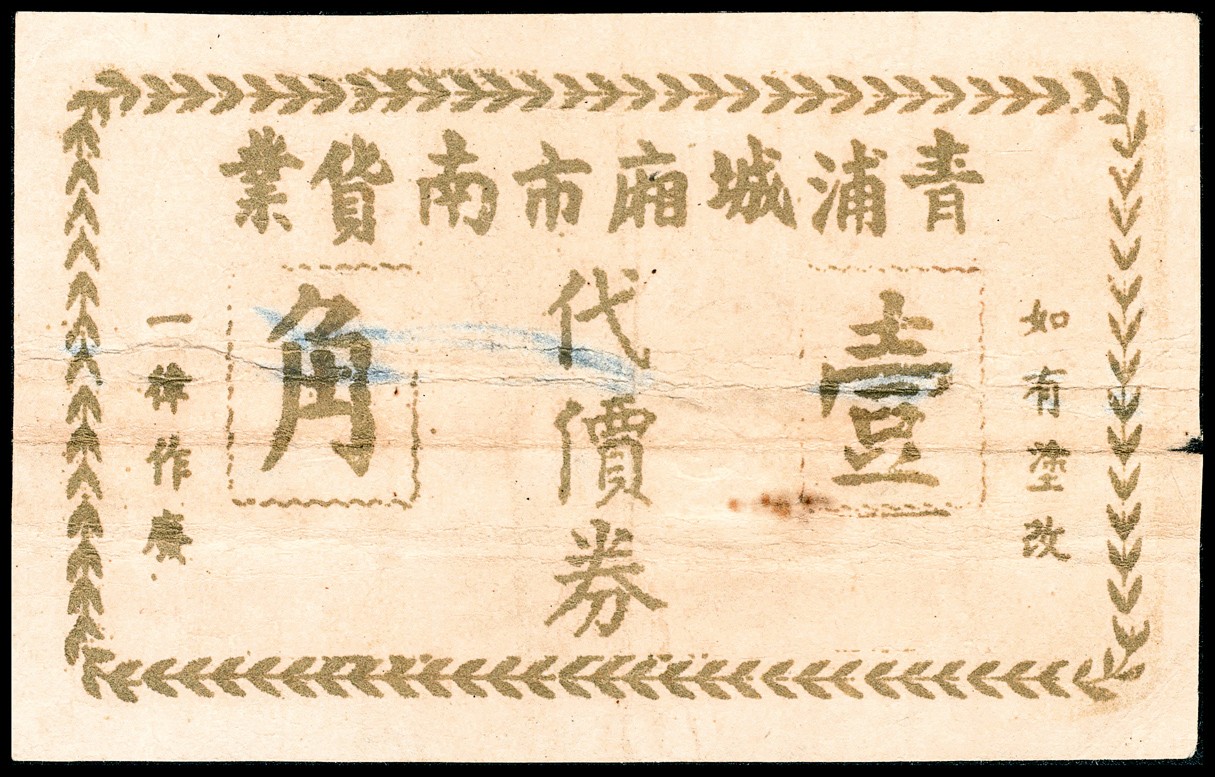 青浦城廂市南貨業
如有塗改
壹
代價券
角
一律作廢